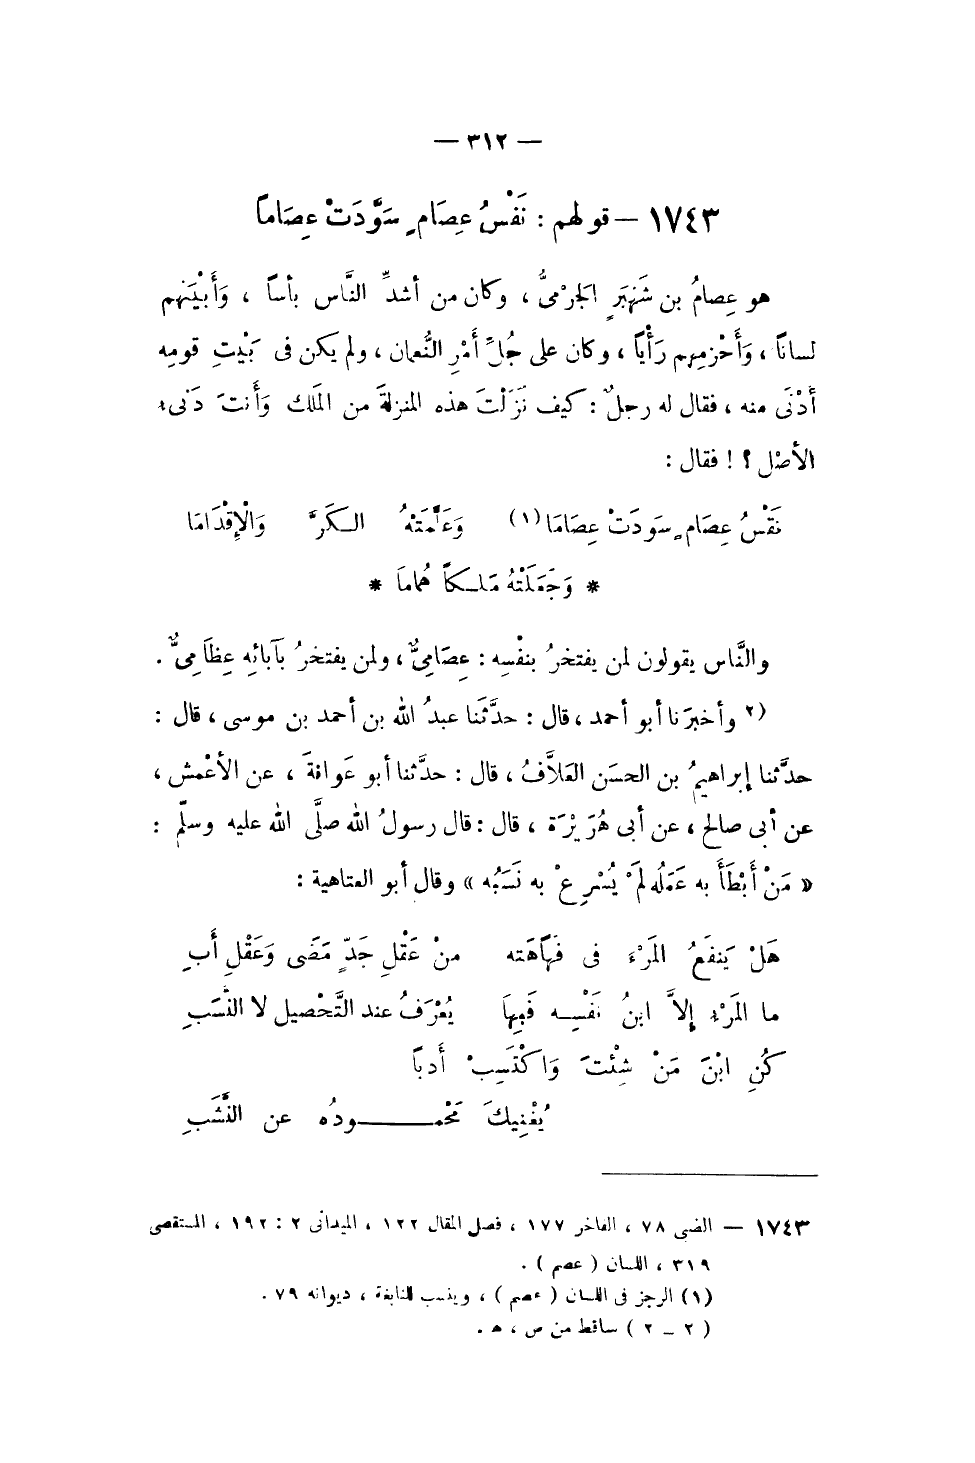 — ٣١٢ —
١٧٤٣ — قولهم : نَفْسُ عِصَامٍ سَوَّدَتْ عِصَامَا
هو عِصامُ بن شَهْبَرٍ الجَرْمىُّ ، وكان من أشدِّ النَّاس بأسًا ، وَأَبْيَنهم
لسانًا ، وَأَحْزمِهِم رَأْيًا ، وكان على جُلِّ أَمْرِ النُّعمان ، ولم يكن فى بَيْتِ قومِه
أَدْنَى منه ، فقال له رجلٌ : كيف نَزَلْتَ هذه المنزلةَ من المَلك وَأَنتَ دَنىء
الأصْل ؟ ! فقال :
نَفْسُ عِصَامٍ سَودَتْ عِصَامَا (١) وَعَلَّمَتْهُ الكَرَّ وَالْإِقْدَامَا
* وَجَعَلَتْهُ مَلِكاً هُمامَا *
والنَّاس يقولون لمن يفتخرُ بنفْسِه : عِصَامِىٌّ ، ولمن يفتخرُ بآبائهِ عِظَامِىٌّ .
(٢ وأخبرَنا أبو أحمد ، قال : حدَّثَنا عبدُ الله بن أحمد بن موسى ، قال :
حدَّثنا إبراهيمُ بن الحسَن العَلاَّفُ ، قال : حدَّثنا أبو عَوانةَ ، عن الأعْمش ،
عن أبى صالح ، عن أبى هُرَيْرَة ، قال : قال رسولُ الله صلَّى الله عليه وسلَّم :
« مَنْ أَبْطَأَ به عَمَلُه لَمْ يُسْرِعْ به نَسَبُه » وقال أبو العتاهية :
هَلْ يَنفَعُ المَرْءَ فى فَهَاهَته منْ عَقْلِ جَدٍّ مَضَى وَعَقْلِ أَبِ
ما المَرْءِ إلاَّ ابنُ نَفْسِه فَبِهَا يُعْرَفُ عند التَّحْصيل لا النَّسَبِ
كُنِ ابْنَ مَنْ شِئْتَ وَاكْتَسِبْ أَدبًا
يُغْنِيكَ مَحْمودُه عن النَّشَبِ
١٧٤٣ — الضبى ٧٨ ، الفاخر ١٧٧ ، فصل المقال ١٢٢ ، الميدانى ٢ : ١٩٢ ، المستقصى
٣١٩ ، اللسان ( عصم ) .
(١) الرجز فى اللسان ( عصم ) ، وينسب للنابغة ، ديوانه ٧٩ .
( ٢ – ٢ ) ساقط من ص ، هـ .